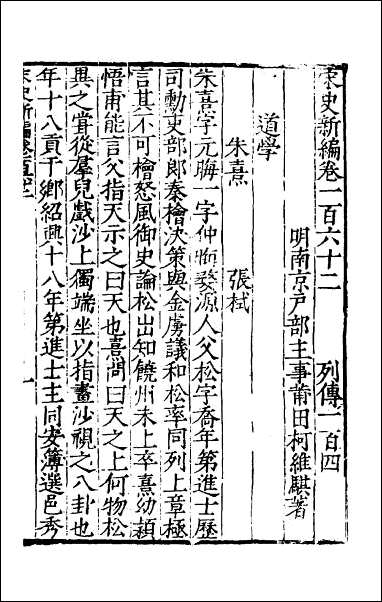 宋史新編卷一百六十二　列傳一百四
明南京戸部主事莆田柯維騏著
道學
朱熹　張栻
朱熹字元晦一字仲晦婺源人父松字喬年第進士歷
司勳吏部郎秦檜決策與金虜議和松率同列上章極
言其不可檜怒風御史論松出知饒州未上卒熹幼穎
悟甫能言父指天示之曰天也熹問曰天之上何物松
異之嘗從羣兒戲沙上獨端坐以指畫沙視之八卦也
年十八貢于鄉紹興十八年第進士主同安簿選邑秀